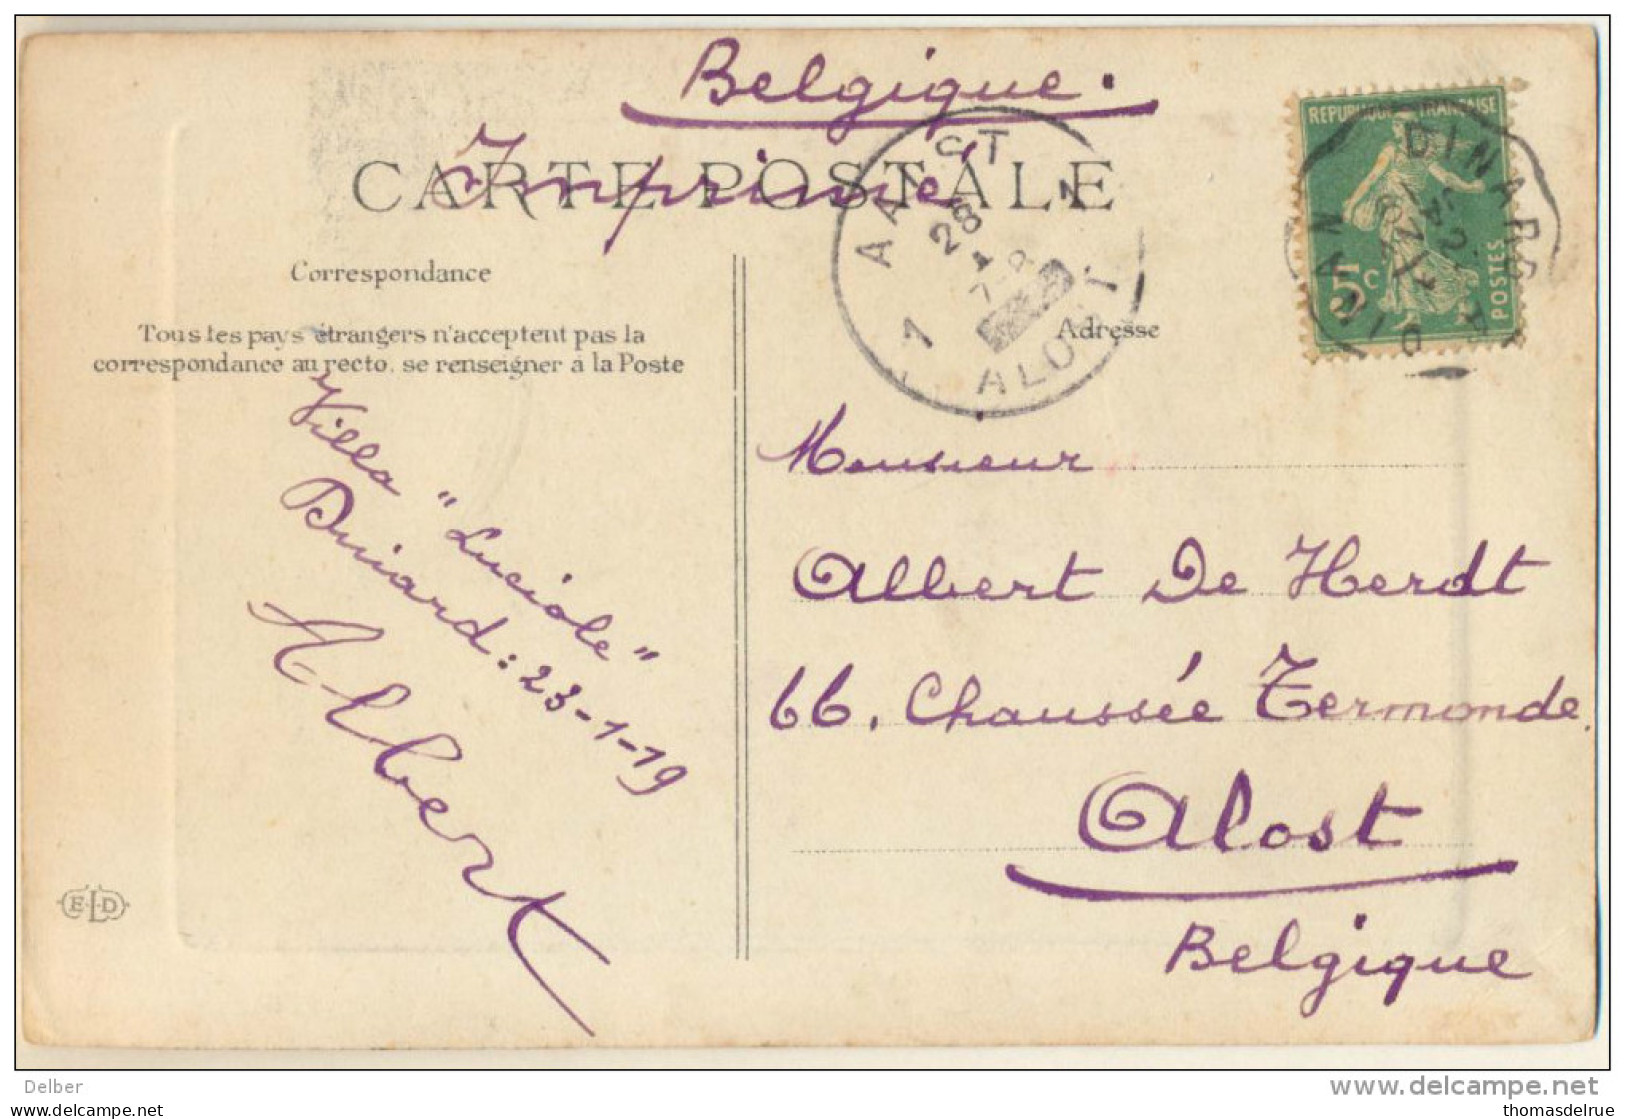 Belgique.
Imprimé
CARTE POSTALE
Correspondance
Tous les pays étrangers n'acceptent pas la
correspondance au recto, se renseigner à la Poste
Adresse
AALST 1
28
1 ALOST 1
REPUBLIQUE FRANÇAISE
5c
POSTES
DINARD A
DINAN
Villa "Luciole"
Dinard: 23-1-19
Albert
Monsieur
Albert De Herdt
66, Chaussée Termonde.
Alost
Belgique
E.L.D
Delber
www.delcampe.net
www.allstamps.com
thomasdelrue